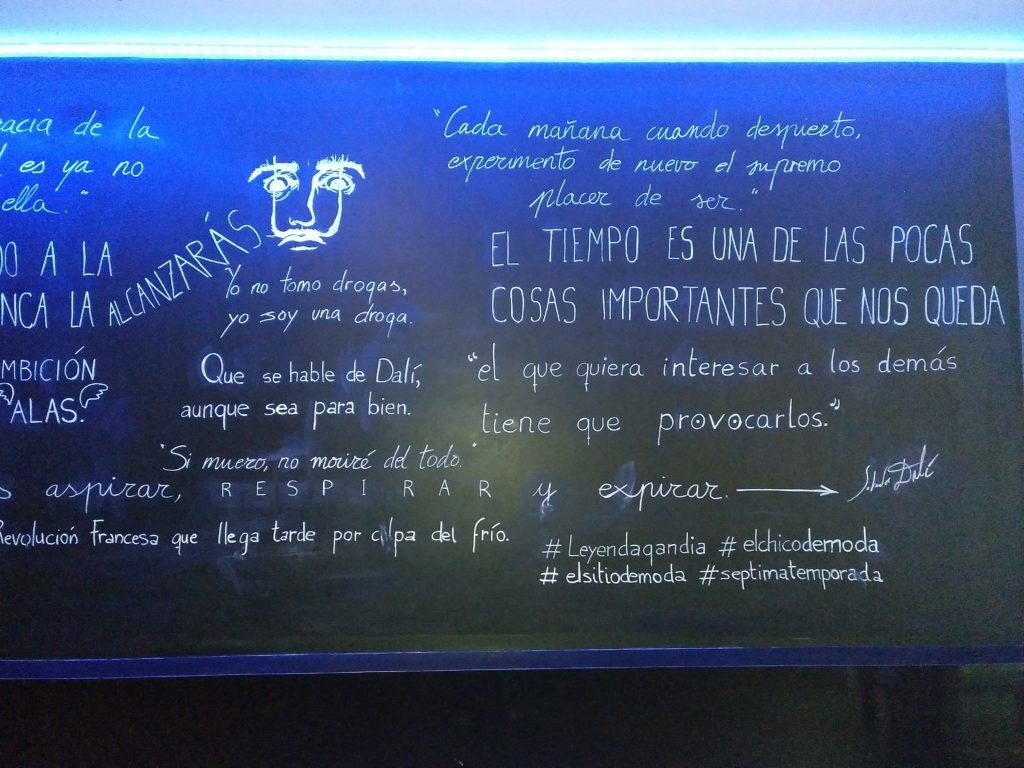 acia de la
es ya no
ella."
DO A LA
NCA LA ALCANZARÁS
MBICIÓN
ALAS.
Yo no tomo drogas,
yo soy una droga.
Que se hable de Dalí,
aunque sea para bien.
"Cada mañana cuando despierto,
experimento de nuevo el supremo
placer de ser."
EL TIEMPO ES UNA DE LAS POCAS
COSAS IMPORTANTES QUE NOS QUEDA
"el que quiera interesar a los demás
tiene que provocarlos."
"Si muero, no moriré del todo."
s aspirar, RESPIRAR y expirar. Dalí
Revolución Francesa que llega tarde por culpa del frío.
#Leyendagandia #elchicodemoda
#elsitiodemoda #septimatemporada